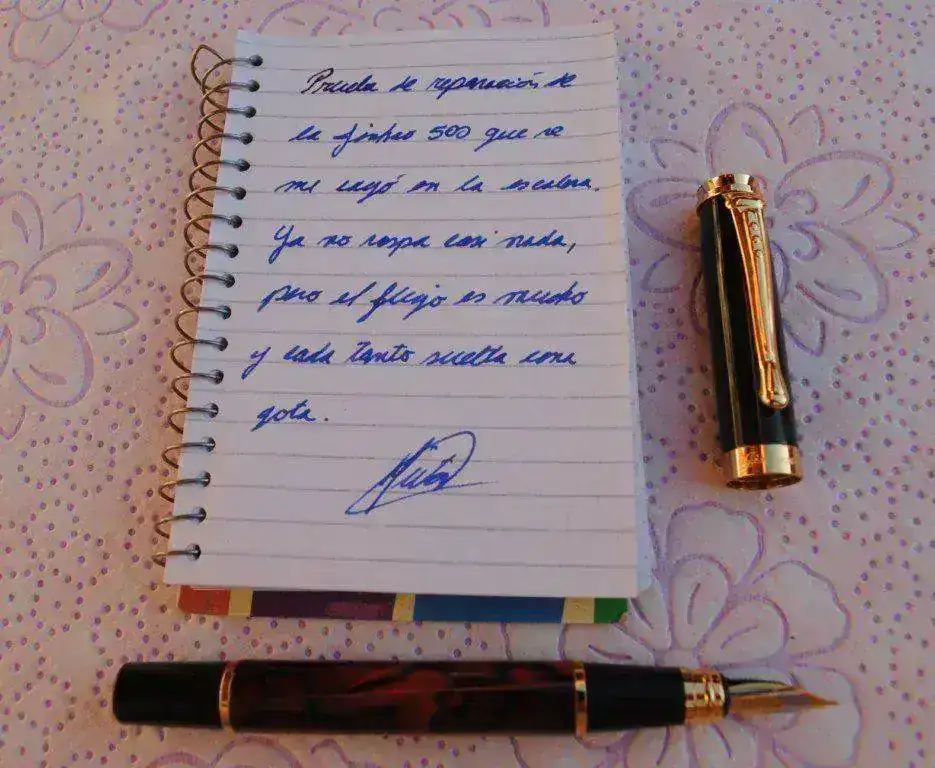 Prueba de reparación de
la jinhao 500 que se
me cayó en la escalera.
Ya no raspa casi nada,
pero el flujo es mucho
y cada tanto suelta una
gota.